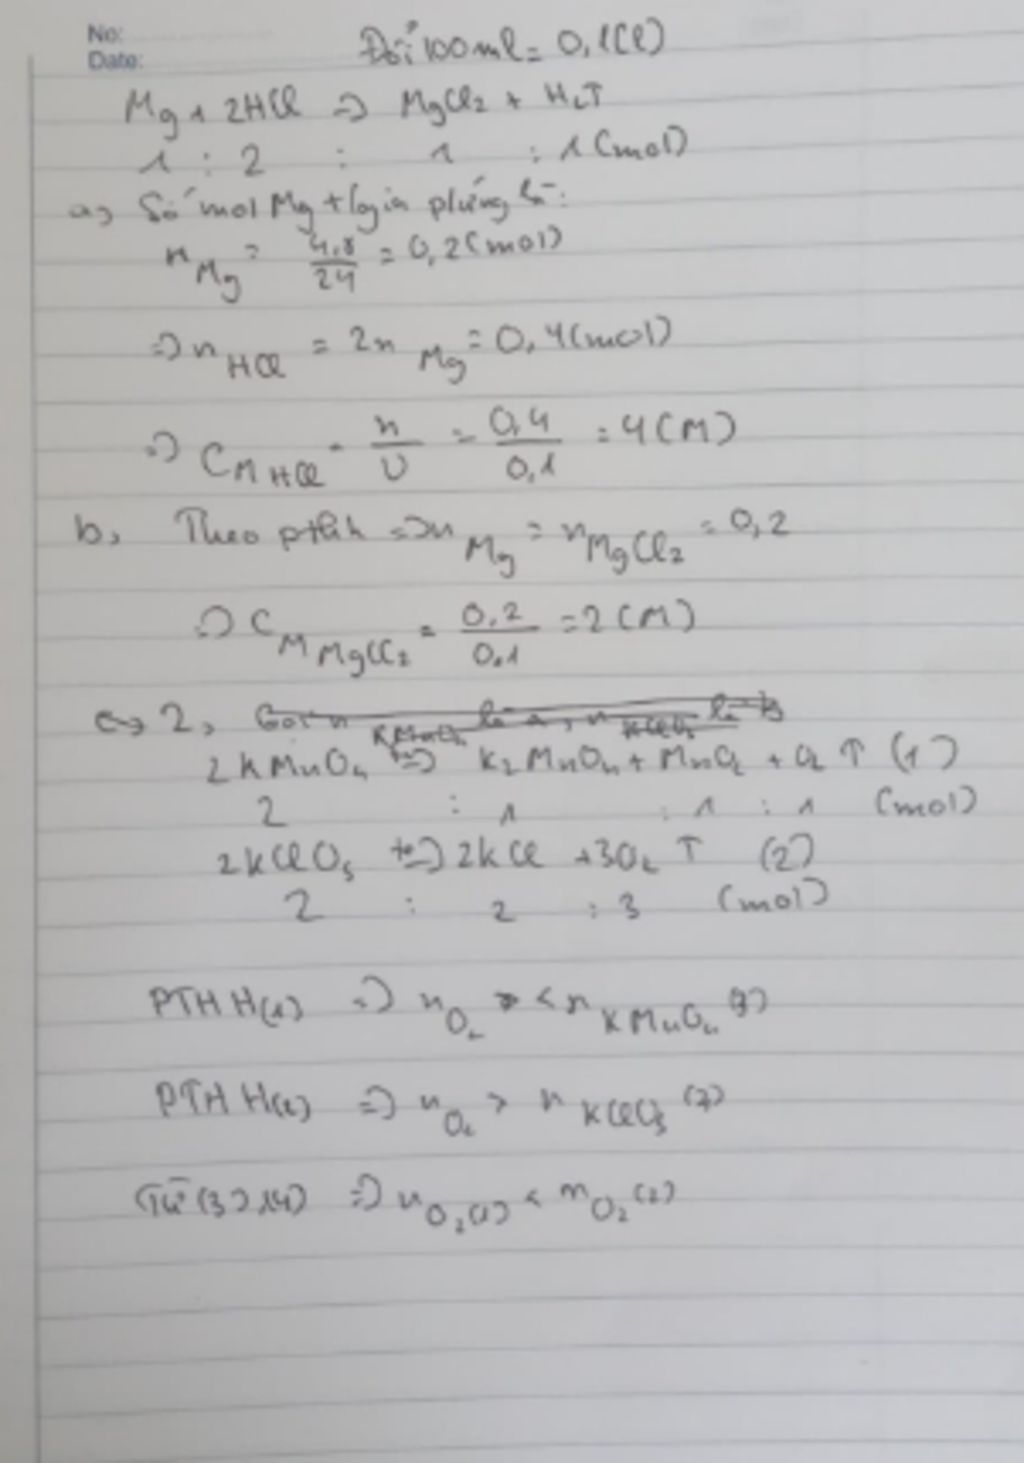 No:
Date:
Đổi 100ml = 0,1(l)
Mg + 2HCl => MgCl2 + H2↑
1 : 2 : 1 : 1 (mol)
a, Số mol Mg tham gia phứng là:
nMg = 4,8/24 = 0,2 (mol)
=> nHCl = 2nMg = 0,4 (mol)
=> CM HCl = n/V = 0,4/0,1 = 4 (M)
b, Theo pthh => nMg = nMgCl2 = 0,2
=> CM MgCl2 = 0,2/0,1 = 2 (M)
2, Gọi n KMnO4 là a, n KClO3 là b
2KMnO4 to=> K2MnO4 + MnO2 + O2 ↑ (1)
2 : 1 : 1 : 1 (mol)
2KClO3 to=> 2KCl + 3O2 ↑ (2)
2 : 2 : 3 (mol)
PTHH(1) => nO2 < nKMnO4 (3)
PTHH(2) => nO2 > nKClO3
Từ (3) (4) => nO2(1) < nO2(2)